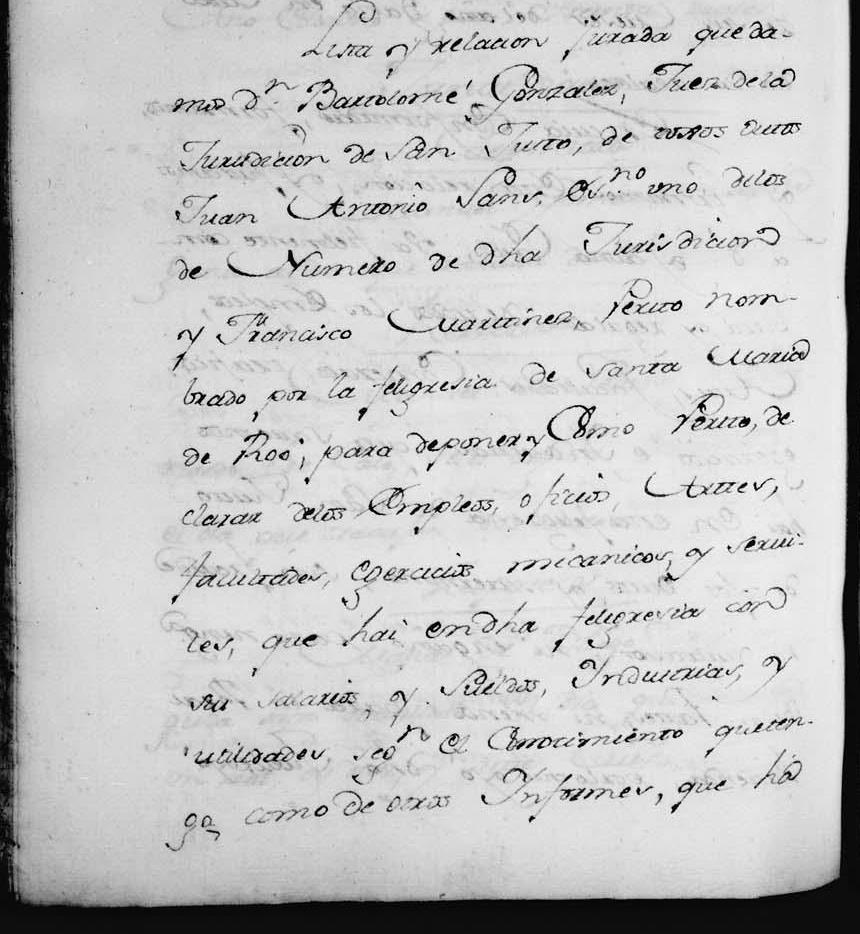 Lista y relacion jurada que da-
mos dn Bartolomé Gonzalez, Juez dela
Jurisdición de San Justo, de
Juan Antonio Sans, Esno uno delos
de Numero de dha Jurisdicion
y Francisco Martinez, Perito nom-
brado por la feligresia de Santa Maria
de Roo, para deponer y Como Perito, de
clarar delos Empleos, oficios, Artes,
facultades, egercicios mecanicos, y servi-
les, que hai endha feligresia con
su salarios, y Sueldos, Industrias, y
utilidades segn el Conocimiento queten-
ga como de otros Informes, que ha